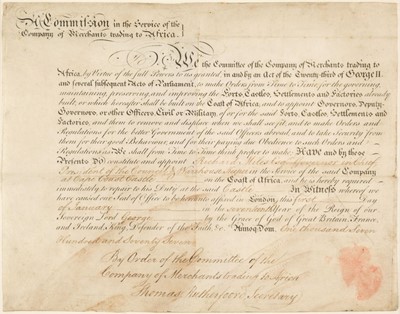 A Commission in the Service of the
Company of Merchants trading to Africa.
We the Committee of the Company of Merchants trading to
Africa, by Virtue of the full Powers to us granted, in and by an Act of the Twenty third of George II.
and several subsequent Acts of Parliament, to make Orders from Time to Time for the governing
maintaining, preserving and improving the Forts, Castles, Settlements and Factories already
built, or which hereafter shall be built on the Coast of Africa, and to appoint Governors, Deputy-
Governors, or other Officers Civil or Military, of or for the said Forts, Castles, Settlements and
Factories, and them to remove and displace when we shall see fit, and to make Orders and
Regulations for the better Government of the said Officers abroad, and to take Security from
them for their good Behaviour, and for their paying due Obedience to such Orders and
Regulations as We shall from Time to Time think proper to make Have and by these
Presents Do constitute and appoint Richard Miles Esq. Governor in Chief
President of the Council & Warehouse keeper in the Service of the said Company
at Cape Coast Castle on the Coast of Africa and he is hereby required
immediately to repair to his Duty at the said Castle In Witness whereof we
have caused our Seal of Office to be hereunto affixed in London, this first Day
of January in the seventeenth Year of the Reign of our
Sovereign Lord George by the Grace of God of Great Britain, France,
and Ireland King, Defender of the Faith &c. Annoq: Dom. One thousand Seven
Hundred and Seventy Seven
By Order of the Committee of the
Company of Merchants trading to Africa
Thomas Rutherfoord Secretary